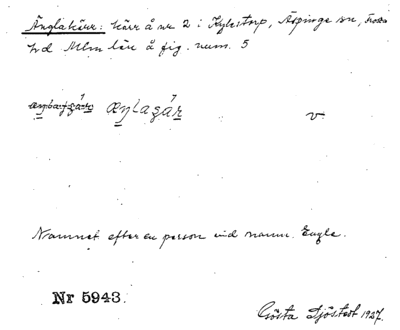 Änglakärr: kärr å nr 2 i Kylestorp, Äspinge sn, Frosta
hd Mlm län å fig. num. 5
v
Namnet efter en person vid namn Engle.
Nr 5943.
Gösta Sjöstedt 1927.